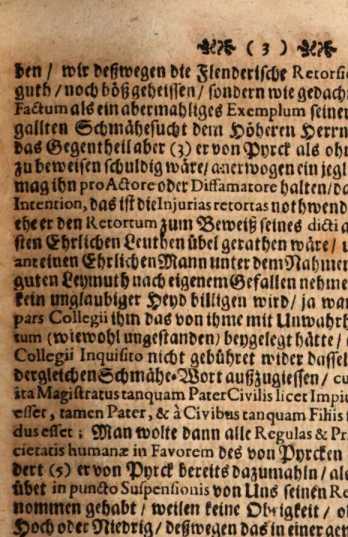 ( 3 )
ben / wir deßwegen die Flenderische Retorsi
guth / noch böß geheissen / sondern wie gedach
Factum als ein abermahliges Exemplum seiner
gallten Schmähesucht dem Höheren Herrn
das Gegentheil aber (3) er von Pyrck als ohn
zu beweisen schuldig wäre / anerwogen ein jegl
mag ihn pro Actore oder Diffamatore halten / da
Intention, das ist die Injurias retortas nothwend
ehe er den Retortum zum Beweiß seines dicti a
sten Ehrlichen Leuthen übel gerathen wäre / u
ant einen Ehrlichen Mann unter dem Nahmen
guten Leymuth nach eigenem Gefallen nehme
kein unglaubiger Heyd billigen wird / ja wan
pars Collegii ihm das von ihme mit Unwahrh
tum (wiewohl ungestanden) beygelegt hätte /
Collegii Inquisito nicht gebühret wider dassel
dergleichen Schmähe-Wort außzugiessen / cu
ita Magistratus tanquam Pater Civilis licet Impiu
esset, tamen Pater, & à Civibus tanquam Filiis h
dus esset ; Man wolte dann alle Regulas & Pr
cietatis humanæ in Favorem des von Pyrcken
dert (5) er von Pyrck bereits dazumahln / als
übet in puncto Suspensionis von Uns seinen Re
nommen gehabt / weilen keine Obrigkeit / o
Hoch oder Niedrig / deßwegen das in einer gen